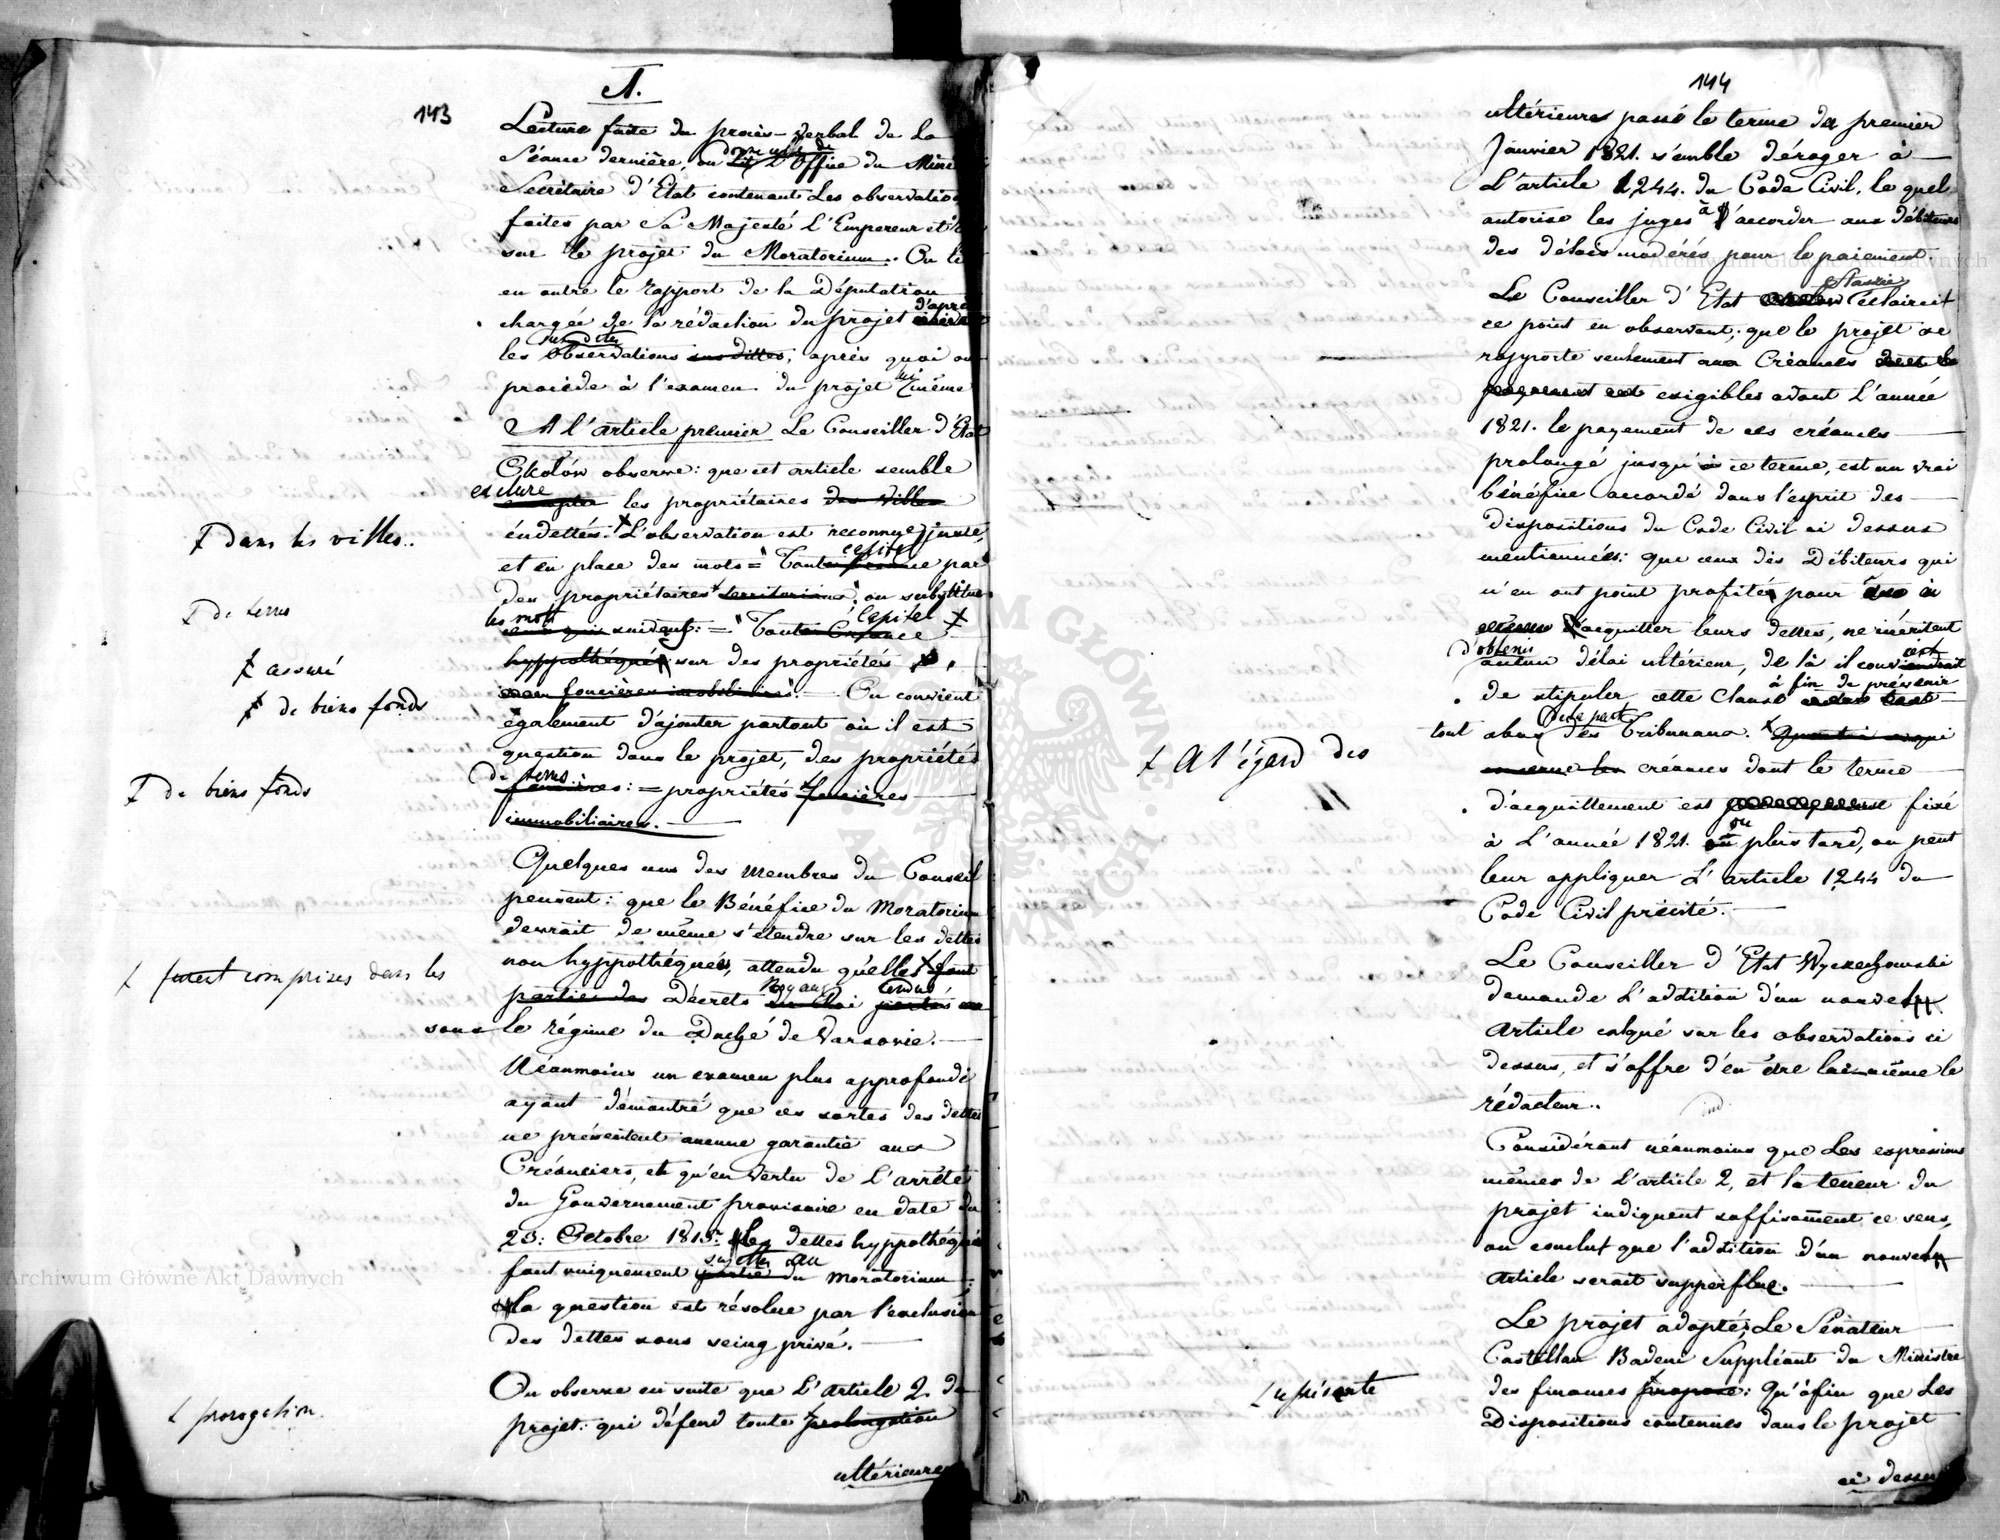 143
A.
Lecture faite du procès-verbal de la
Séance dernière, on donne celle de L'Office du Mini
Secrétaire d'Etat contenant les observations
faites par Sa Majesté L'Empereur et
sur le projet du Moratorium. On lit
en outre le rapport de la Députation
chargée de la rédaction du projet d'après
les susdites observations sus dittes, après quoi on
procède à l'examen du projet lui même
A l'article premier Le Conseiller d'Etat
Okołów observe: que cet article semble
exclure les propriétaires des villes
éndettés. L'observation est reconnue juste,
Ŧ dans les villes..
et en place des mots = "Toute créance capital par
des propriétaires territoriaux", on substitue
Ŧ de terres
les mots suivants: = "Toute Créance Capital
hyppothéquée sur des propriétés
Ŧ assuré
foncières immobilières". — On convient
Ŧ de biens fonds
également d'ajouter partout où il est
question dans le projet, des propriétés
de terres foncières: = propriétés foncières
Ŧ de biens fonds
immobiliaires. —
Quelques uns des membres du Conseil
pensent: que le Bénéfice du Moratorium
devrait de même s'étendre sur les dettes
non hyppothéquées, attendu qu'elles font
Ŧ furent comprises dans les
parties des Décrets Royaux rendus
sous le régime du Duché de Varsovie. —
Néanmoins un examen plus approfondi
ayant démontré que ces sortes des dettes
ne présentent aucune garantie aux
Créanciers, et qu'en vertu de L'arrêté
du Gouvernement provisoire en date du
23: Octobre 1813: les dettes hyppothéquées
sont uniquement sujettes au partie du moratorium
la question est résolue par l'exclusion
des dettes sous seing privé. —
On observe ensuite que L'article 2 du
projet: qui défend toute prolongation
Ŧ prorogation.
ultérieure
144
ultérieures passé le terme du premier
Janvier 1821. semble déroger à —
L'article 1244. du Code Civil, le quel
autorise les juges à d'accorder aux débiteurs
des délais modérés pour le paiement
Le Conseiller d'Etat Staszic éclaircit
ce point en observant; que le projet se
rapporte seulement aux Créances dont le
payement est exigibles avant L'année
1821. le payement de ces créances —
prolongé jusqu'à ce terme, est un vrai
bénéfice accordé dans l'esprit des —
dispositions du Code Civil ci dessus
mentionnées: que ceux des Débiteurs qui
n'en ont point profités pour
acquitter leurs dettes, ne méritent
d'obtenir aucun délai ultérieur, de là il conviendrait
de stipuler cette Clause à fin de prévenir
tout abus de la part des Tribunaux. Quant à ce qui
Ŧ A l'égard des
concerne les créances dont le terme —
d'acquittement est fixé
à L'année 1821. ou plus tard, on peut
leur appliquer L'article 1244 du
Code Civil précité. —
Le Conseiller d'Etat Wyczechowski
demande L'addition d'un nouvel
article calqué sur les observations ci
dessus, et s'offre d'en être lui-même le
rédacteur.
Considérant néanmoins que les expressions
mêmes de L'article 2, et la teneur du
projet indiquent suffisament ce sens,
on conclut que l'addition d'un nouvel
article serait supperflue. —
Le projet adopté, Le Sénateur
Castellan Badeni Suppléant du Ministre
des finances propose: qu'àfin que les
Ŧ représente
Dispositions contenues dans le projet
ci dessus
Archiwum Główne Akt Dawnych
Archiwum Główne Akt Dawnych